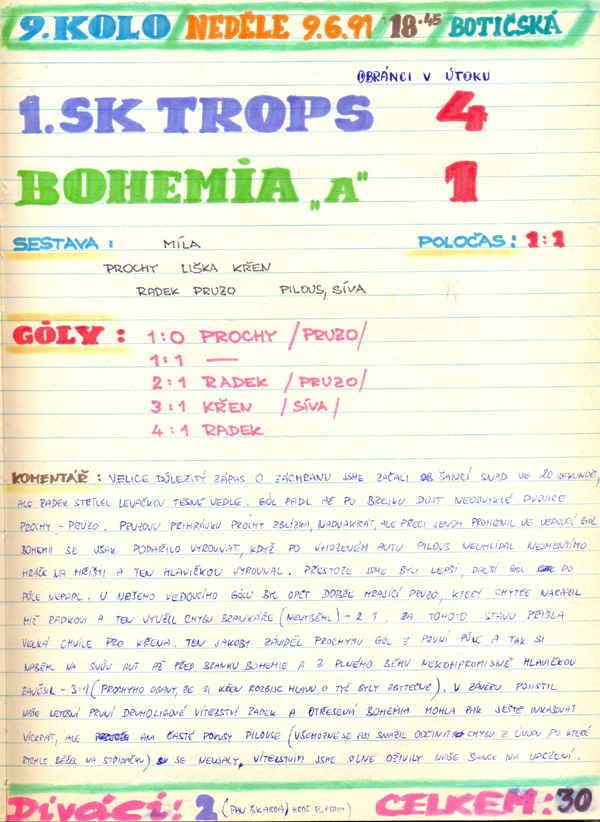 9. KOLO / NEDĚLE 9.6.91 / 18.45 BOTIČSKÁ
OBRÁNCI V ÚTOKU
1. SK TROPS 4
BOHEMIA „A" 1
SESTAVA : MÍLA POLOČAS : 1:1
PROCHY LIŠKA KŘEN
RADEK PRUZO PILOUS, SÍVA
GÓLY : 1:0 PROCHY /PRUZO/
1:1 —
2:1 RADEK /PRUZO/
3:1 KŘEN /SÍVA/
4:1 RADEK
KOMENTÁŘ : VELICE DŮLEŽITÝ ZÁPAS O ZÁCHRANU JSME ZAČALI ŠANCÍ SNAD VE 20 SEKUNDĚ,
ALE RADEK STŘÍLEL LEVAČKOU TĚSNĚ VEDLE. GÓL PADL AŽ PO BREJKU DOST NEOBVYKLÉ DVOJICE
PROCHY - PRUZO. PRUZOVU PŘIHRÁVKU PROCHY ZBLÍZKA, NADVAKRÁT, ALE PŘECI JENOM PROMĚNIL VE VEDOUCÍ GÓL
BOHEMII SE VŠAK PODAŘILO VYROVNAT, KDYŽ PO VHOZENÉM AUTU PILOUS NEUHLÍDAL NEJMENŠÍHO
HRÁČE NA HŘIŠTI A TEN HLAVIČKOU VYROVNAL. PŘESTOŽE JSME BYLI LEPŠÍ, DALŠÍ GÓL DO
PŮLE NEPADL. U NAŠEHO VEDOUCÍHO GÓLU BYL OPĚT DOBŘE HRAJÍCÍ PRUZO, KTERÝ CHYTŘE NARAZIL
MÍČ RADKOVI A TEN VYUŽIL CHYBU BRANKÁŘE (NEVYBĚHL) - 2:1. ZA TOHOTO STAVU PŘIŠLA
VELKÁ CHVÍLE PRO KŘENA. TEN JAKOBY ZÁVIDĚL PROCHYMU GÓL Z PRVNÍ PŮLE A TAK SI
NABĚHL NA SVŮJ AUT AŽ PŘED BRANKU BOHEMIE A Z PLNÉHO BĚHU NEKOMPROMISNĚ HLAVIČKOU
ZAVĚSIL - 3:1 (PROCHYHO OBAVY, ŽE SI KŘEN ROZBIJE HLAVU O TYČ BYLY ZBYTEČNÉ). V ZÁVĚRU POJISTIL
NAŠE LETOŠNÍ PRVNÍ DRUHOLIGOVÉ VÍTĚZSTVÍ RADEK A OTŘESENÁ BOHEMIA MOHLA PAK JEŠTĚ INKASOVAT
VÍCKRÁT, ALE ANI ČASTÉ POKUSY PILOUSE (VŠEMOŽNĚ SE ASI SNAŽIL ODČINIT CHYBU Z ÚVODU PO KTERÉ
RYCHLE BĚŽEL NA STŘÍDAČKU) SE NEUJALY. VÍTĚZSTVÍM JSME SILNĚ OŽIVILY NAŠE ŠANCE NA UDRŽENÍ.
Diváci: 2 (PAN ŠKARDA, HRÁČ) CELKEM: 30